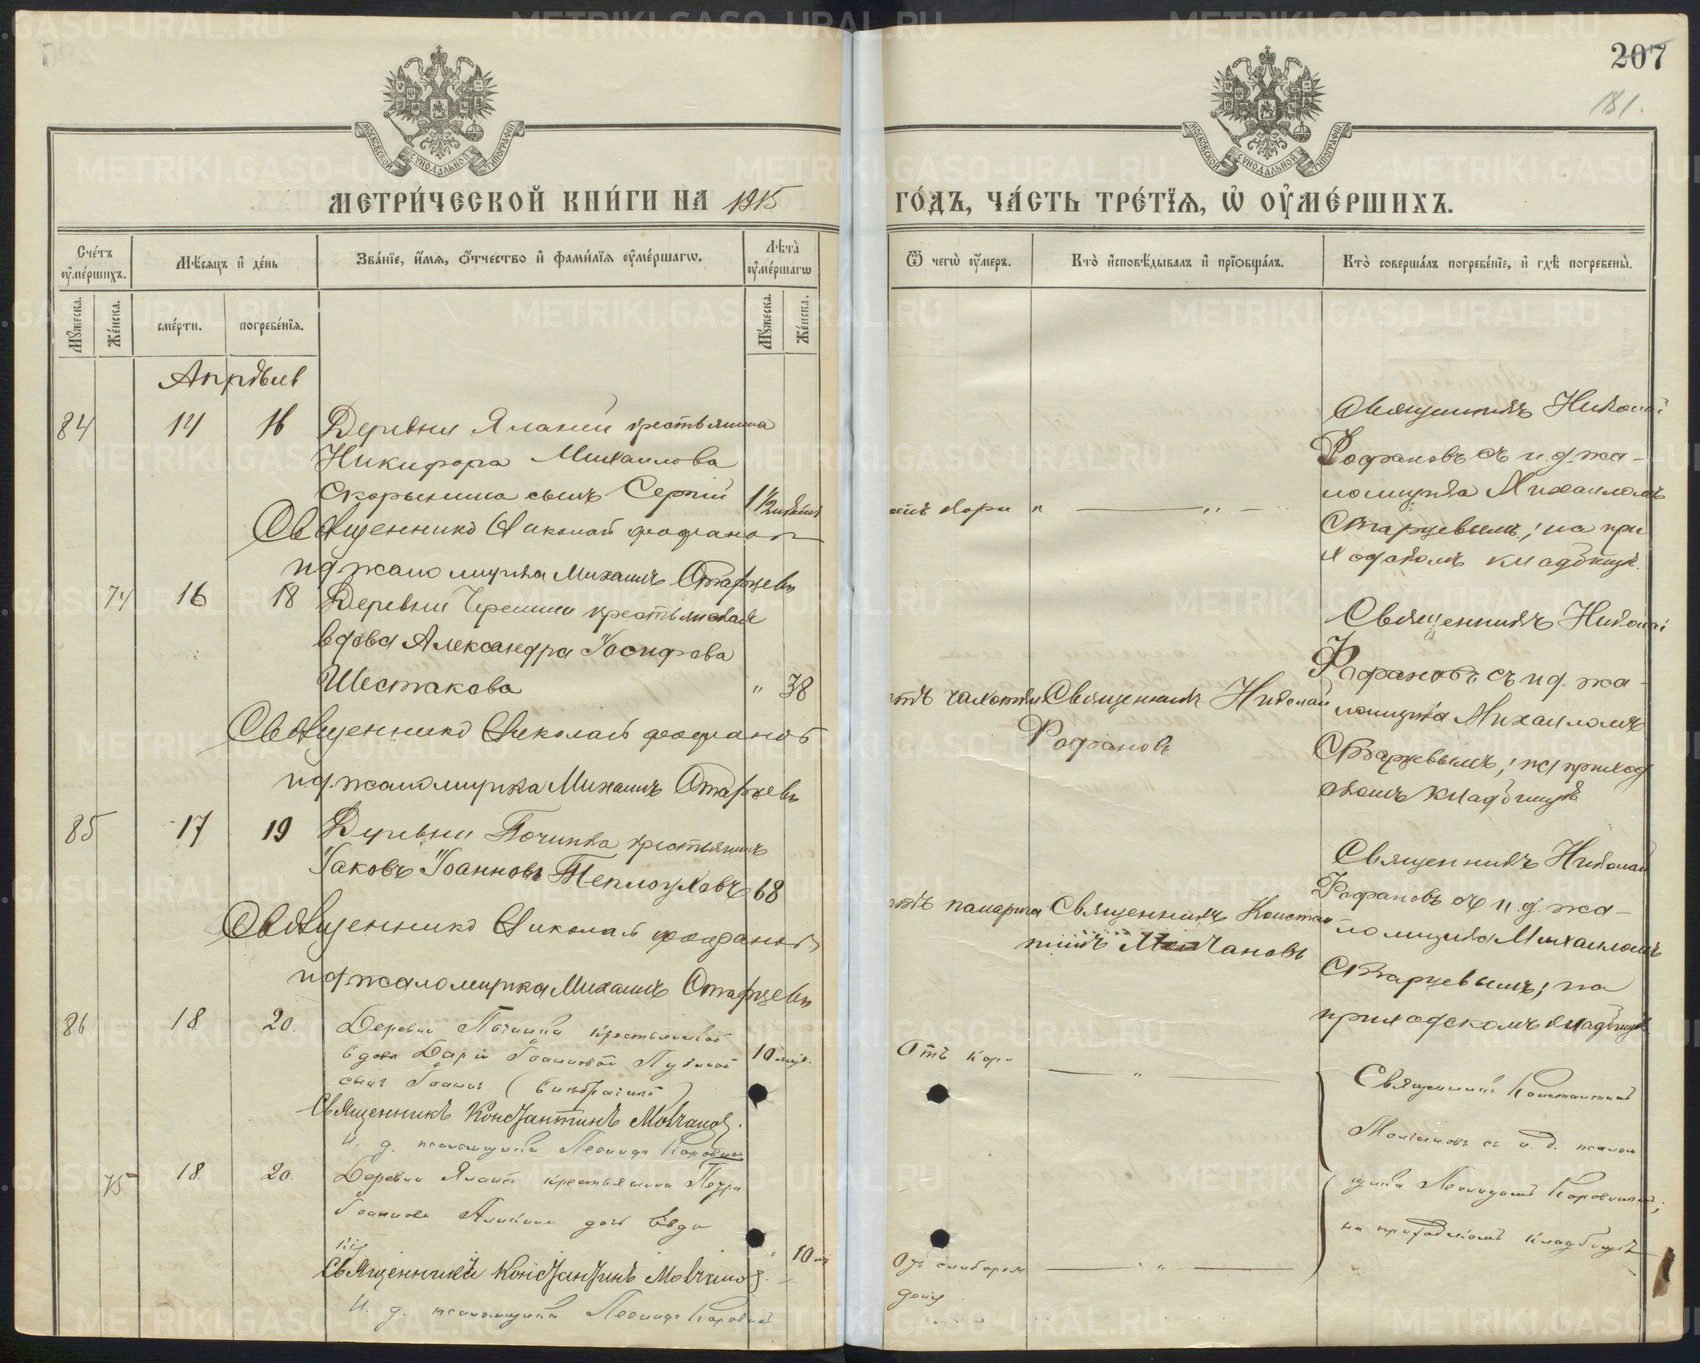 207
181.
МОСКОВСКОЙ СѴНОДАЛЬНОЙ ТИПОГРАФІИ
МОСКОВСКОЙ СѴНОДАЛЬНОЙ ТИПОГРАФІИ
МЕТРИ́ЧЕСКОЙ КНИ́ГИ НА 1915
ГО́ДЪ, ЧА́СТЬ ТРЕ́ТІѦ, Ѡ҆ ОУ҆МЕ́РШИХЪ.
Счетъ оумершихъ.
Мѣсяцъ и день
Званіе, имя, отчество и фамилія оумершагѡ.
Лѣта оумершагѡ
Ѿ чегѡ оумеръ.
Кто исповѣдывалъ и пріобщалъ.
Кто совершалъ погребеніе, и гдѣ погребены.
Мужеска.
Женска.
смерти.
погребенія.
Мужеска.
Женска.
Апрѣль
84 14 16 Деревни Яланки крестьянина
Никифора Михаилова
Скорынина сынъ Сергій
Священникъ Николай Фофановъ
и д псаломщика Михаилъ Старцевъ
кори
Священникъ Николай
Фофановъ съ и.д. пса-
ломщика Михаиломъ
Старцевымъ, на при
ходскомъ кладбищѣ.
74 16 18 Деревни крестьянская
вдова Александра Іосифова
Шестакова " 38
Священникъ Николай Фофановъ
и д. псаломщика Михаилъ Старцевъ
чахотки Священникъ Николай
Фофановъ
Священникъ Николай
Фофановъ съ и д. пса-
ломщика Михаиломъ
Старцевымъ, на приход
скомъ кладбищѣ
85 17 19 Деревни Починка крестьянинъ
Іаковъ Іоанновъ Теплоуховъ 68
Священникъ Николай Фофановъ
и д псаломщика Михаилъ Старцевъ
Священникъ Констан
тинъ Молчановъ
Священникъ Николай
Фофановъ съ и.д. пса-
ломщика Михаиломъ
Старцевымъ; на
приходскомъ кладбищѣ
86 18 20. Деревни Починка крестьянской
вдовы Даріи Іоанновой
сынъ Іоаннъ (внѣбрачный) 10 мѣс.
Священникъ Константинъ Молчановъ.
И. д. псаломщика Леонидъ
Отъ кори
Священникъ Константинъ
Молчановъ съ и. д. псалом
щика Леонидомъ
на приходскомъ кладбищѣ
75 18. 20. Деревни Яланки крестьянина Петра
Іоаннова дочь Евдо
кія " 10
Священникъ Константинъ Молчановъ.
И. д. псаломщика Леонидъ